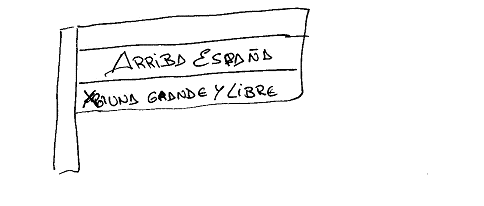 ARRIBA ESPAÑA
UNA GRANDE Y LIBRE